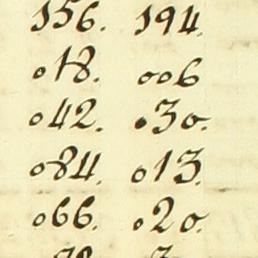 156. 194.
018. 006
042. 030.
084. 013.
066. 020.